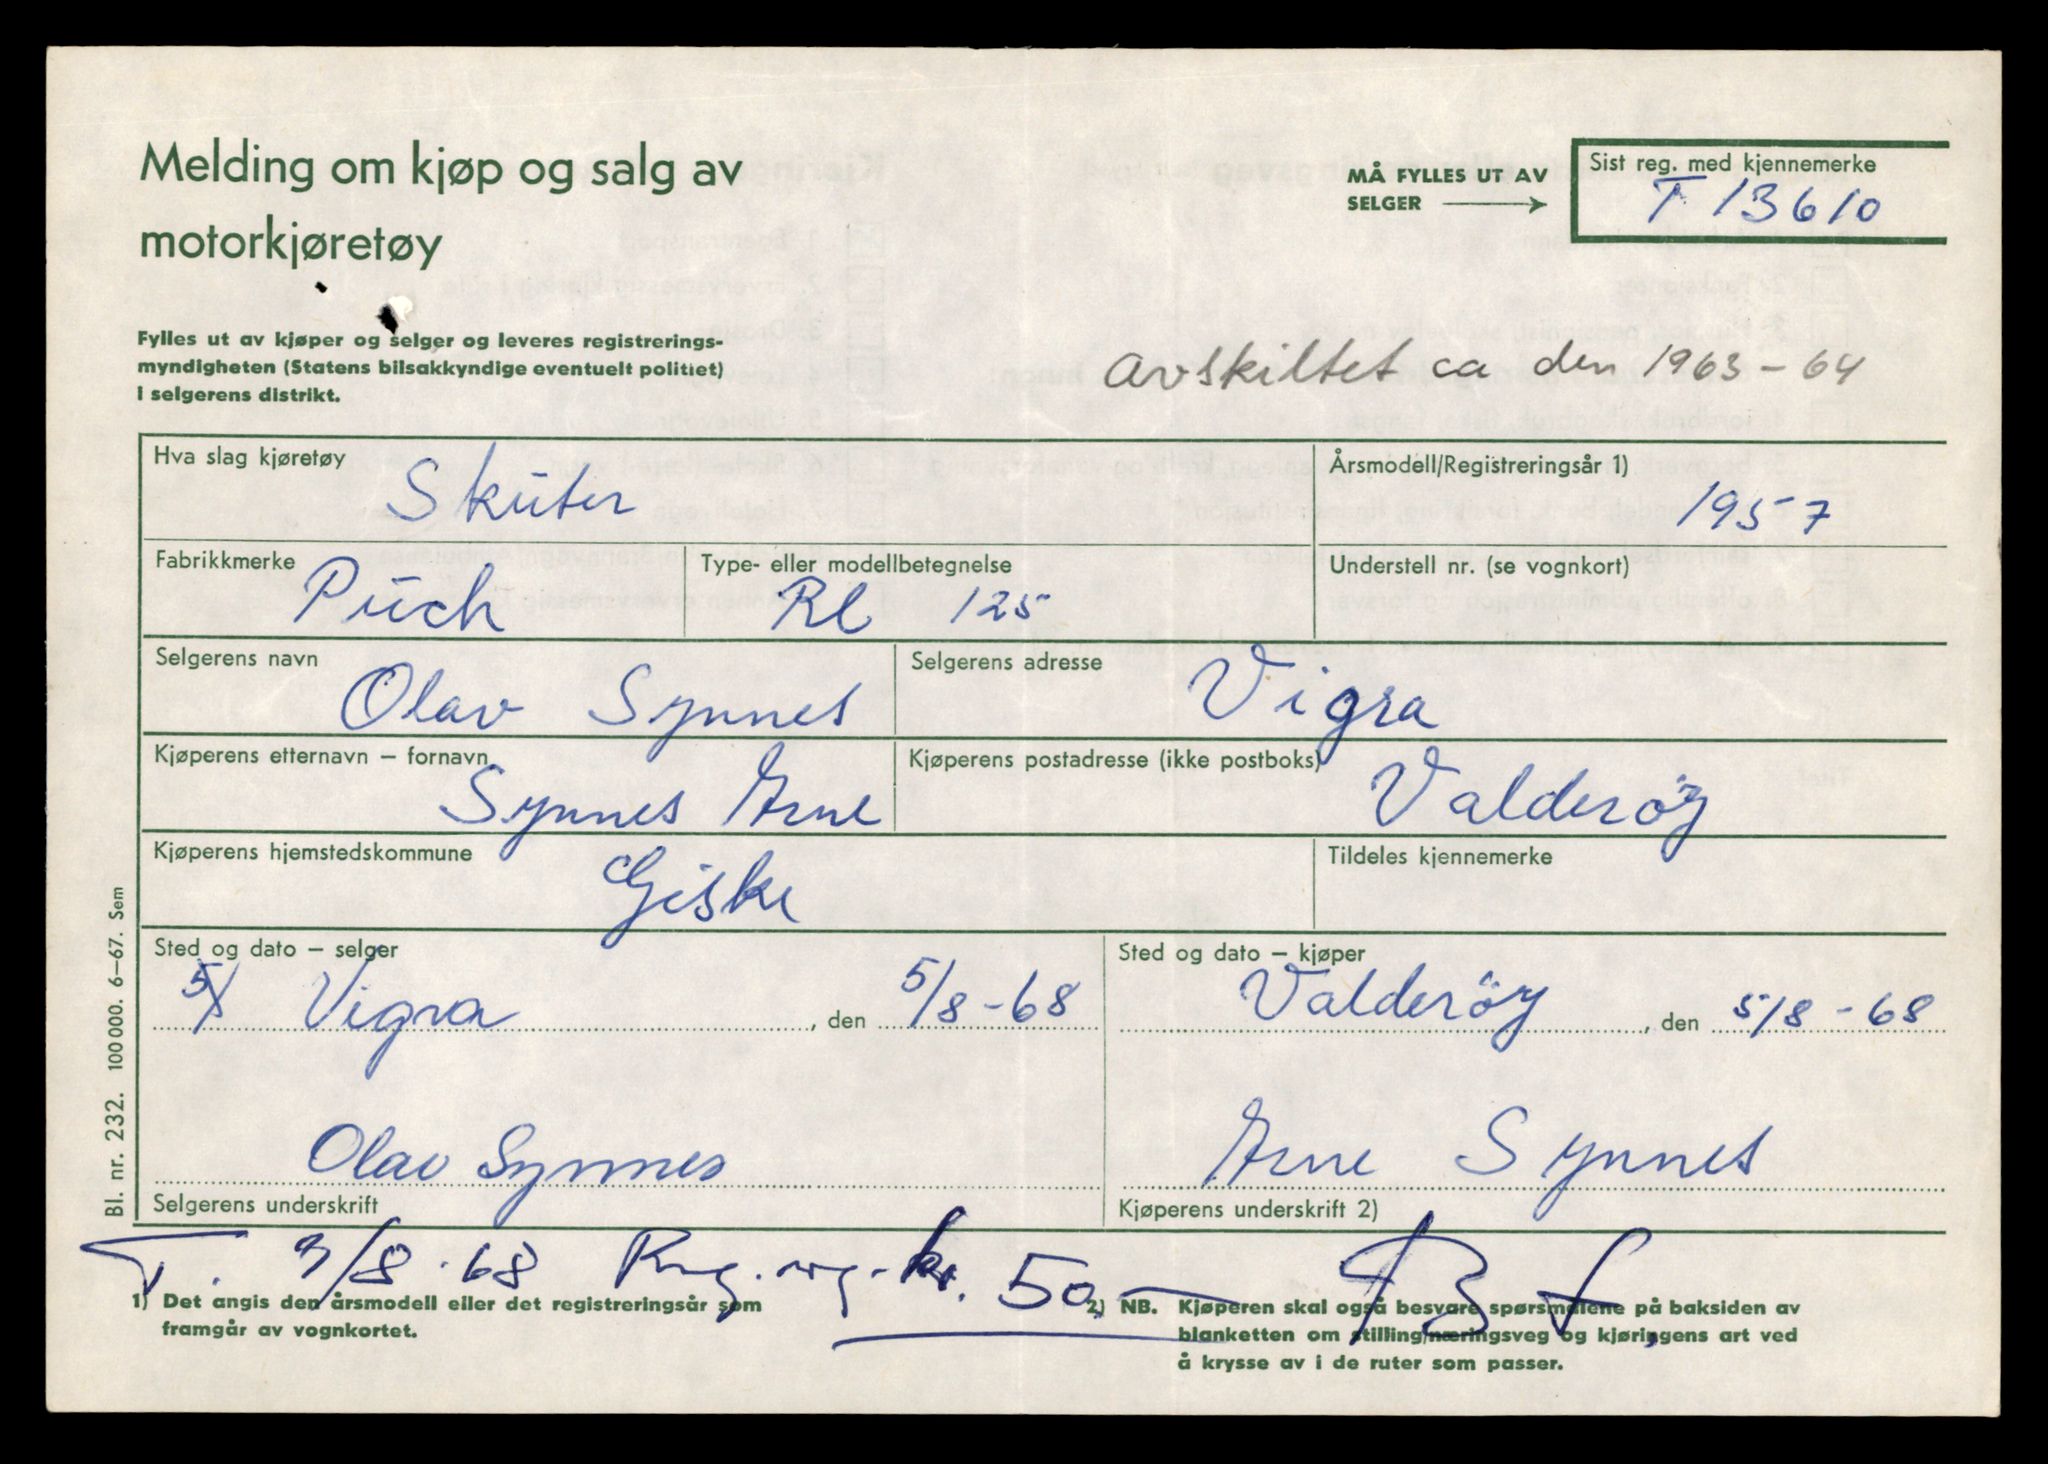 Melding om kjøp og salg av
motorkjøretøy
MÅ FYLLES UT AV
SELGER
Sist reg. med kjennemerke
T 13610
Fylles ut av kjøper og selger og leveres registrerings-
myndigheten (Statens bilsakkyndige eventuelt politiet)
i selgerens distrikt.
Avskiltet ca den 1963-64
Hva slag kjøretøy
Skuter
Årsmodell/Registreringsår 1)
1957
Fabrikkmerke
Puch
Type- eller modellbetegnelse
RL 125
Understell nr. (se vognkort)
Selgerens navn
Olav Synnes
Selgerens adresse
Vigra
Kjøperens etternavn – fornavn
Synnes Arne
Kjøperens postadresse (ikke postboks)
Valderöy
Kjøperens hjemstedskommune
Giske
Tildeles kjennemerke
Sted og dato – selger
5/8 Vigra, den 5/8-68
Sted og dato – kjøper
Valderöy, den 5/8-68
Olav Synnes
Selgerens underskrift
Arne Synnes
Kjøperens underskrift 2)
T. 7/8.68 kr. 50,-
1) Det angis den årsmodell eller det registreringsår som
framgår av vognkortet.
2) NB. Kjøperen skal også besvare spørsmålene på baksiden av
blanketten om stilling/næringsveg og kjøringens art ved
å krysse av i de ruter som passer.
Bl. nr. 232. 100 000. 6–67. Sem